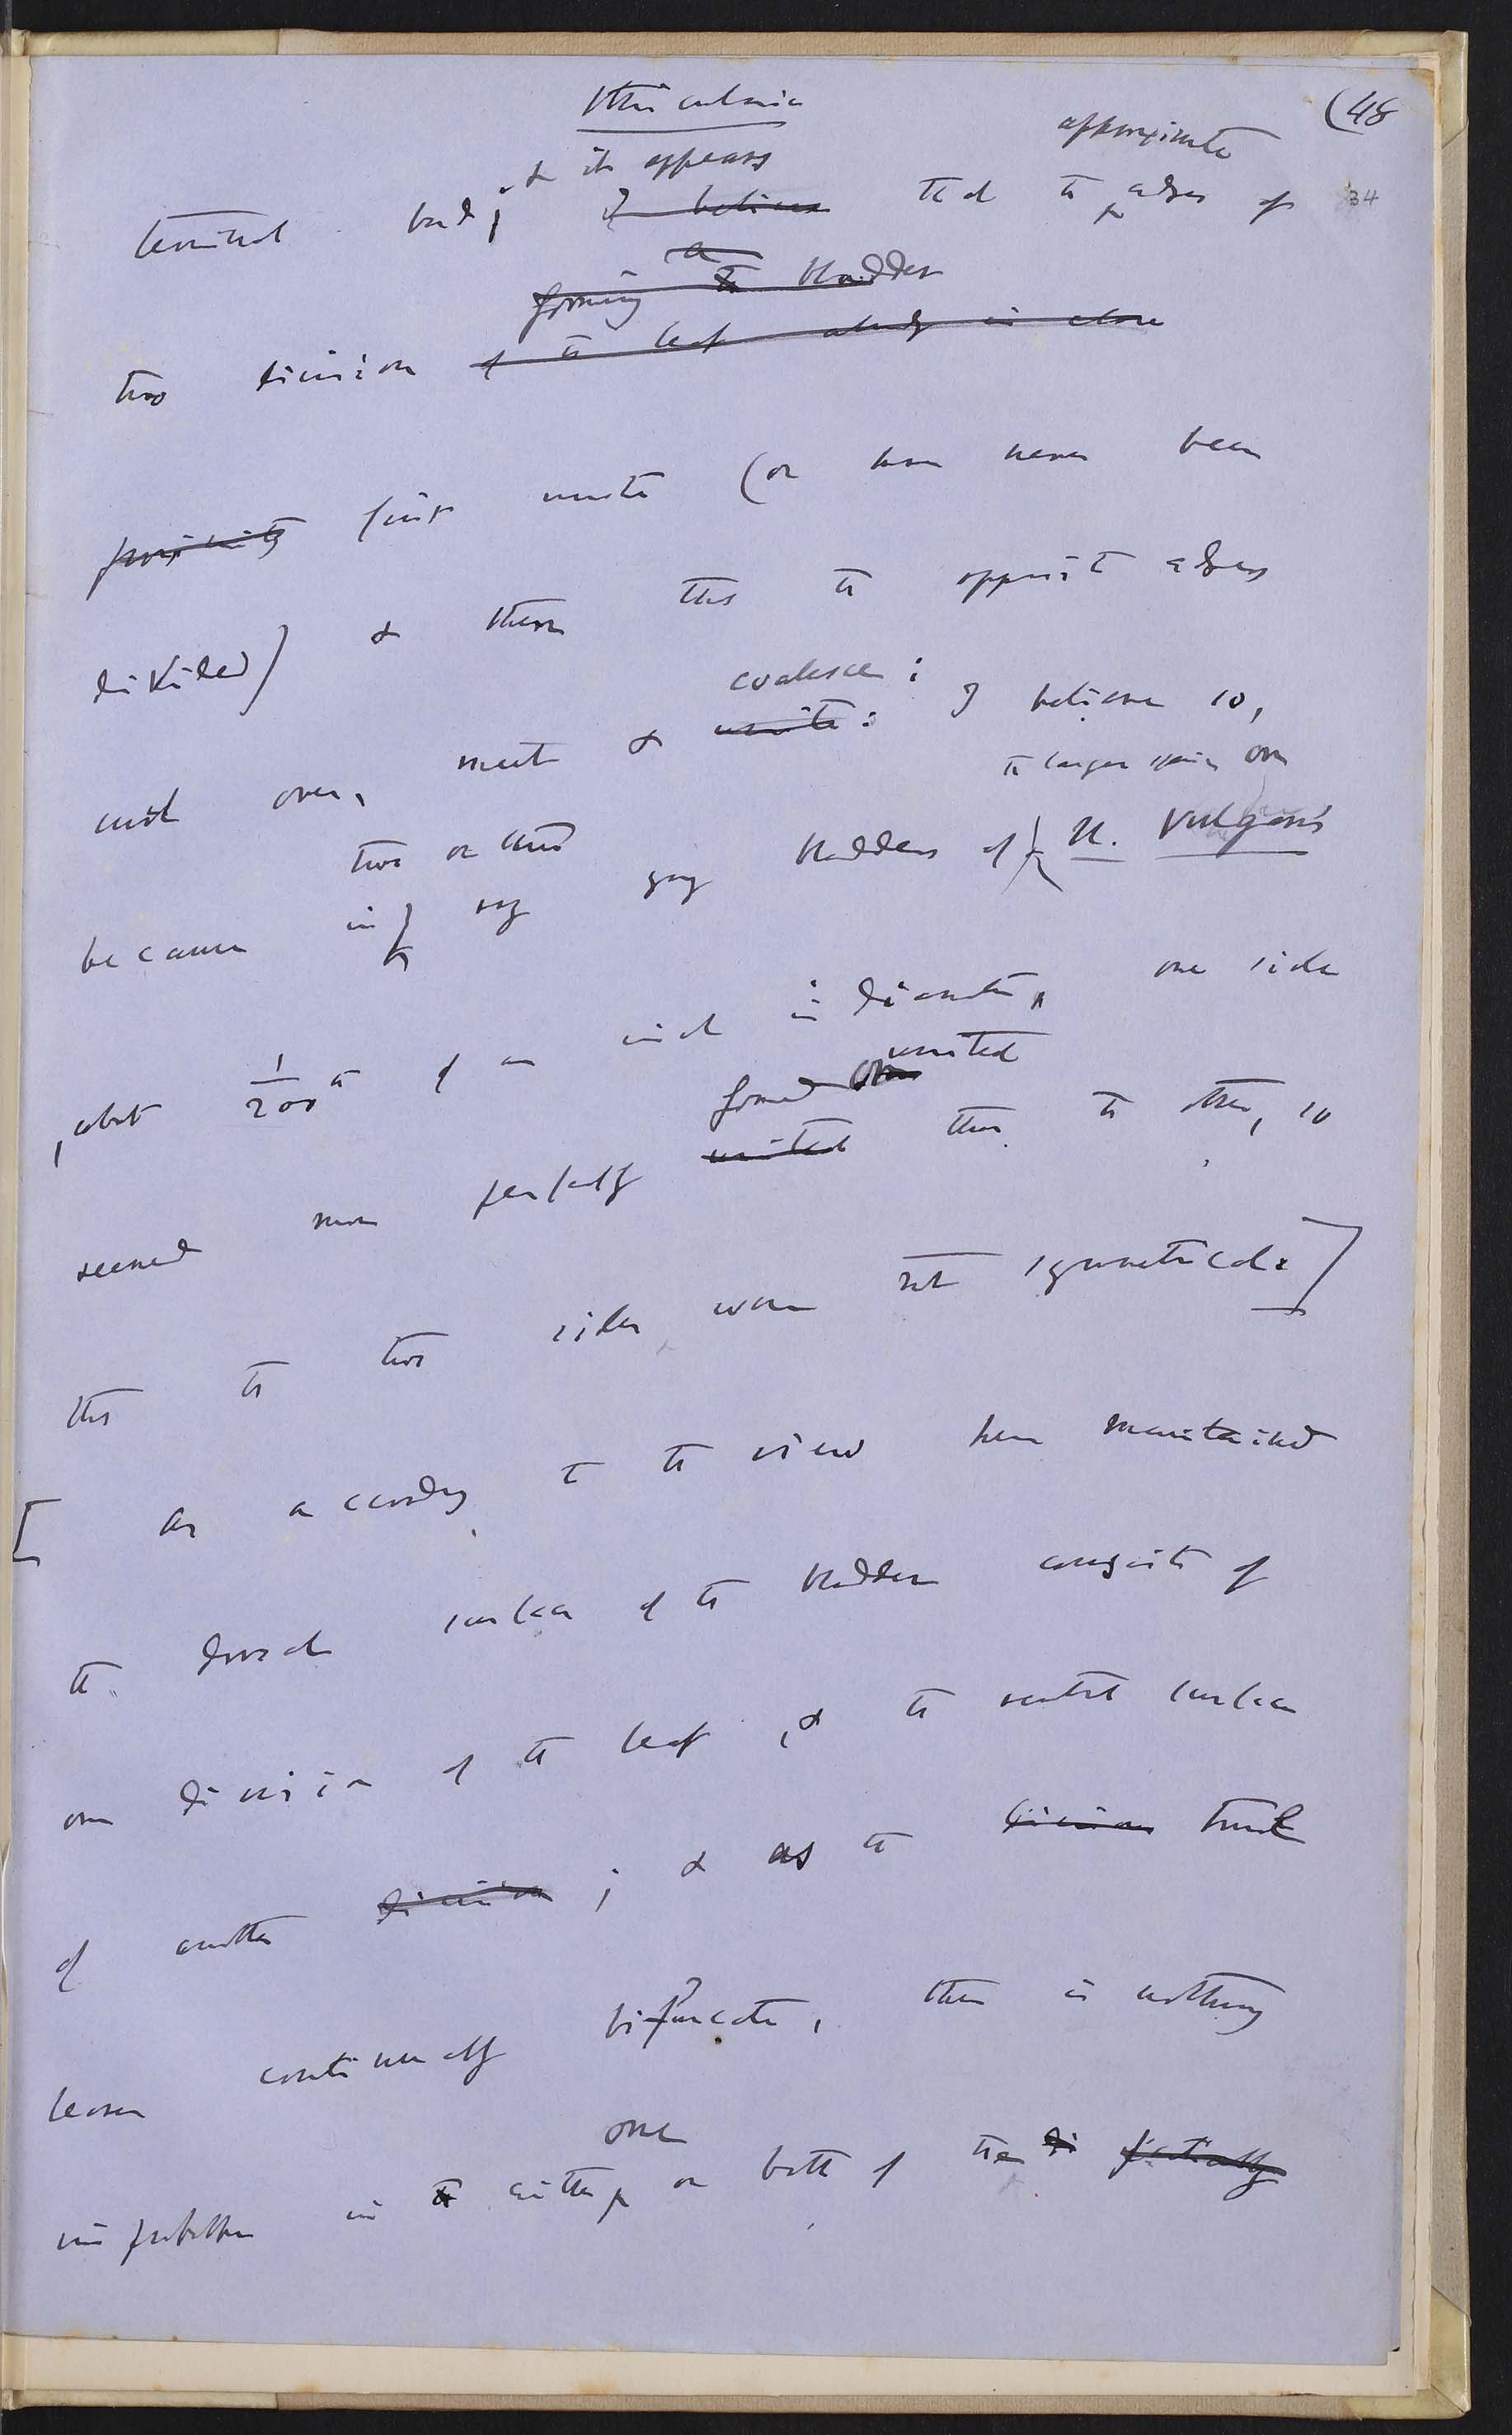 Utricularia
(48
34
& it appears approximate
terminal bud; I believe that the edges of
a
forming the bladder
two division of the leaf already in close
proximity first unite (or have never been
divided) & then that the opposite edges
coalesce:
curl over, meet & unite: I believe so,
the larger species on
two or three
because in my young bladders of U. Vulgaris
about 1/200th of an inch in diameter, one side
united
formed
seemed more perfectly united than the other, so
that the two sides were not symmetrical.]
[ As according to the view here maintained
the dorsal surface of the bladder consists of
one division of the leaf, & the ventral surface
of another division; & as the division true
leaves continually bifurcate, there is nothing
one
improbable in the either or both of the di partially